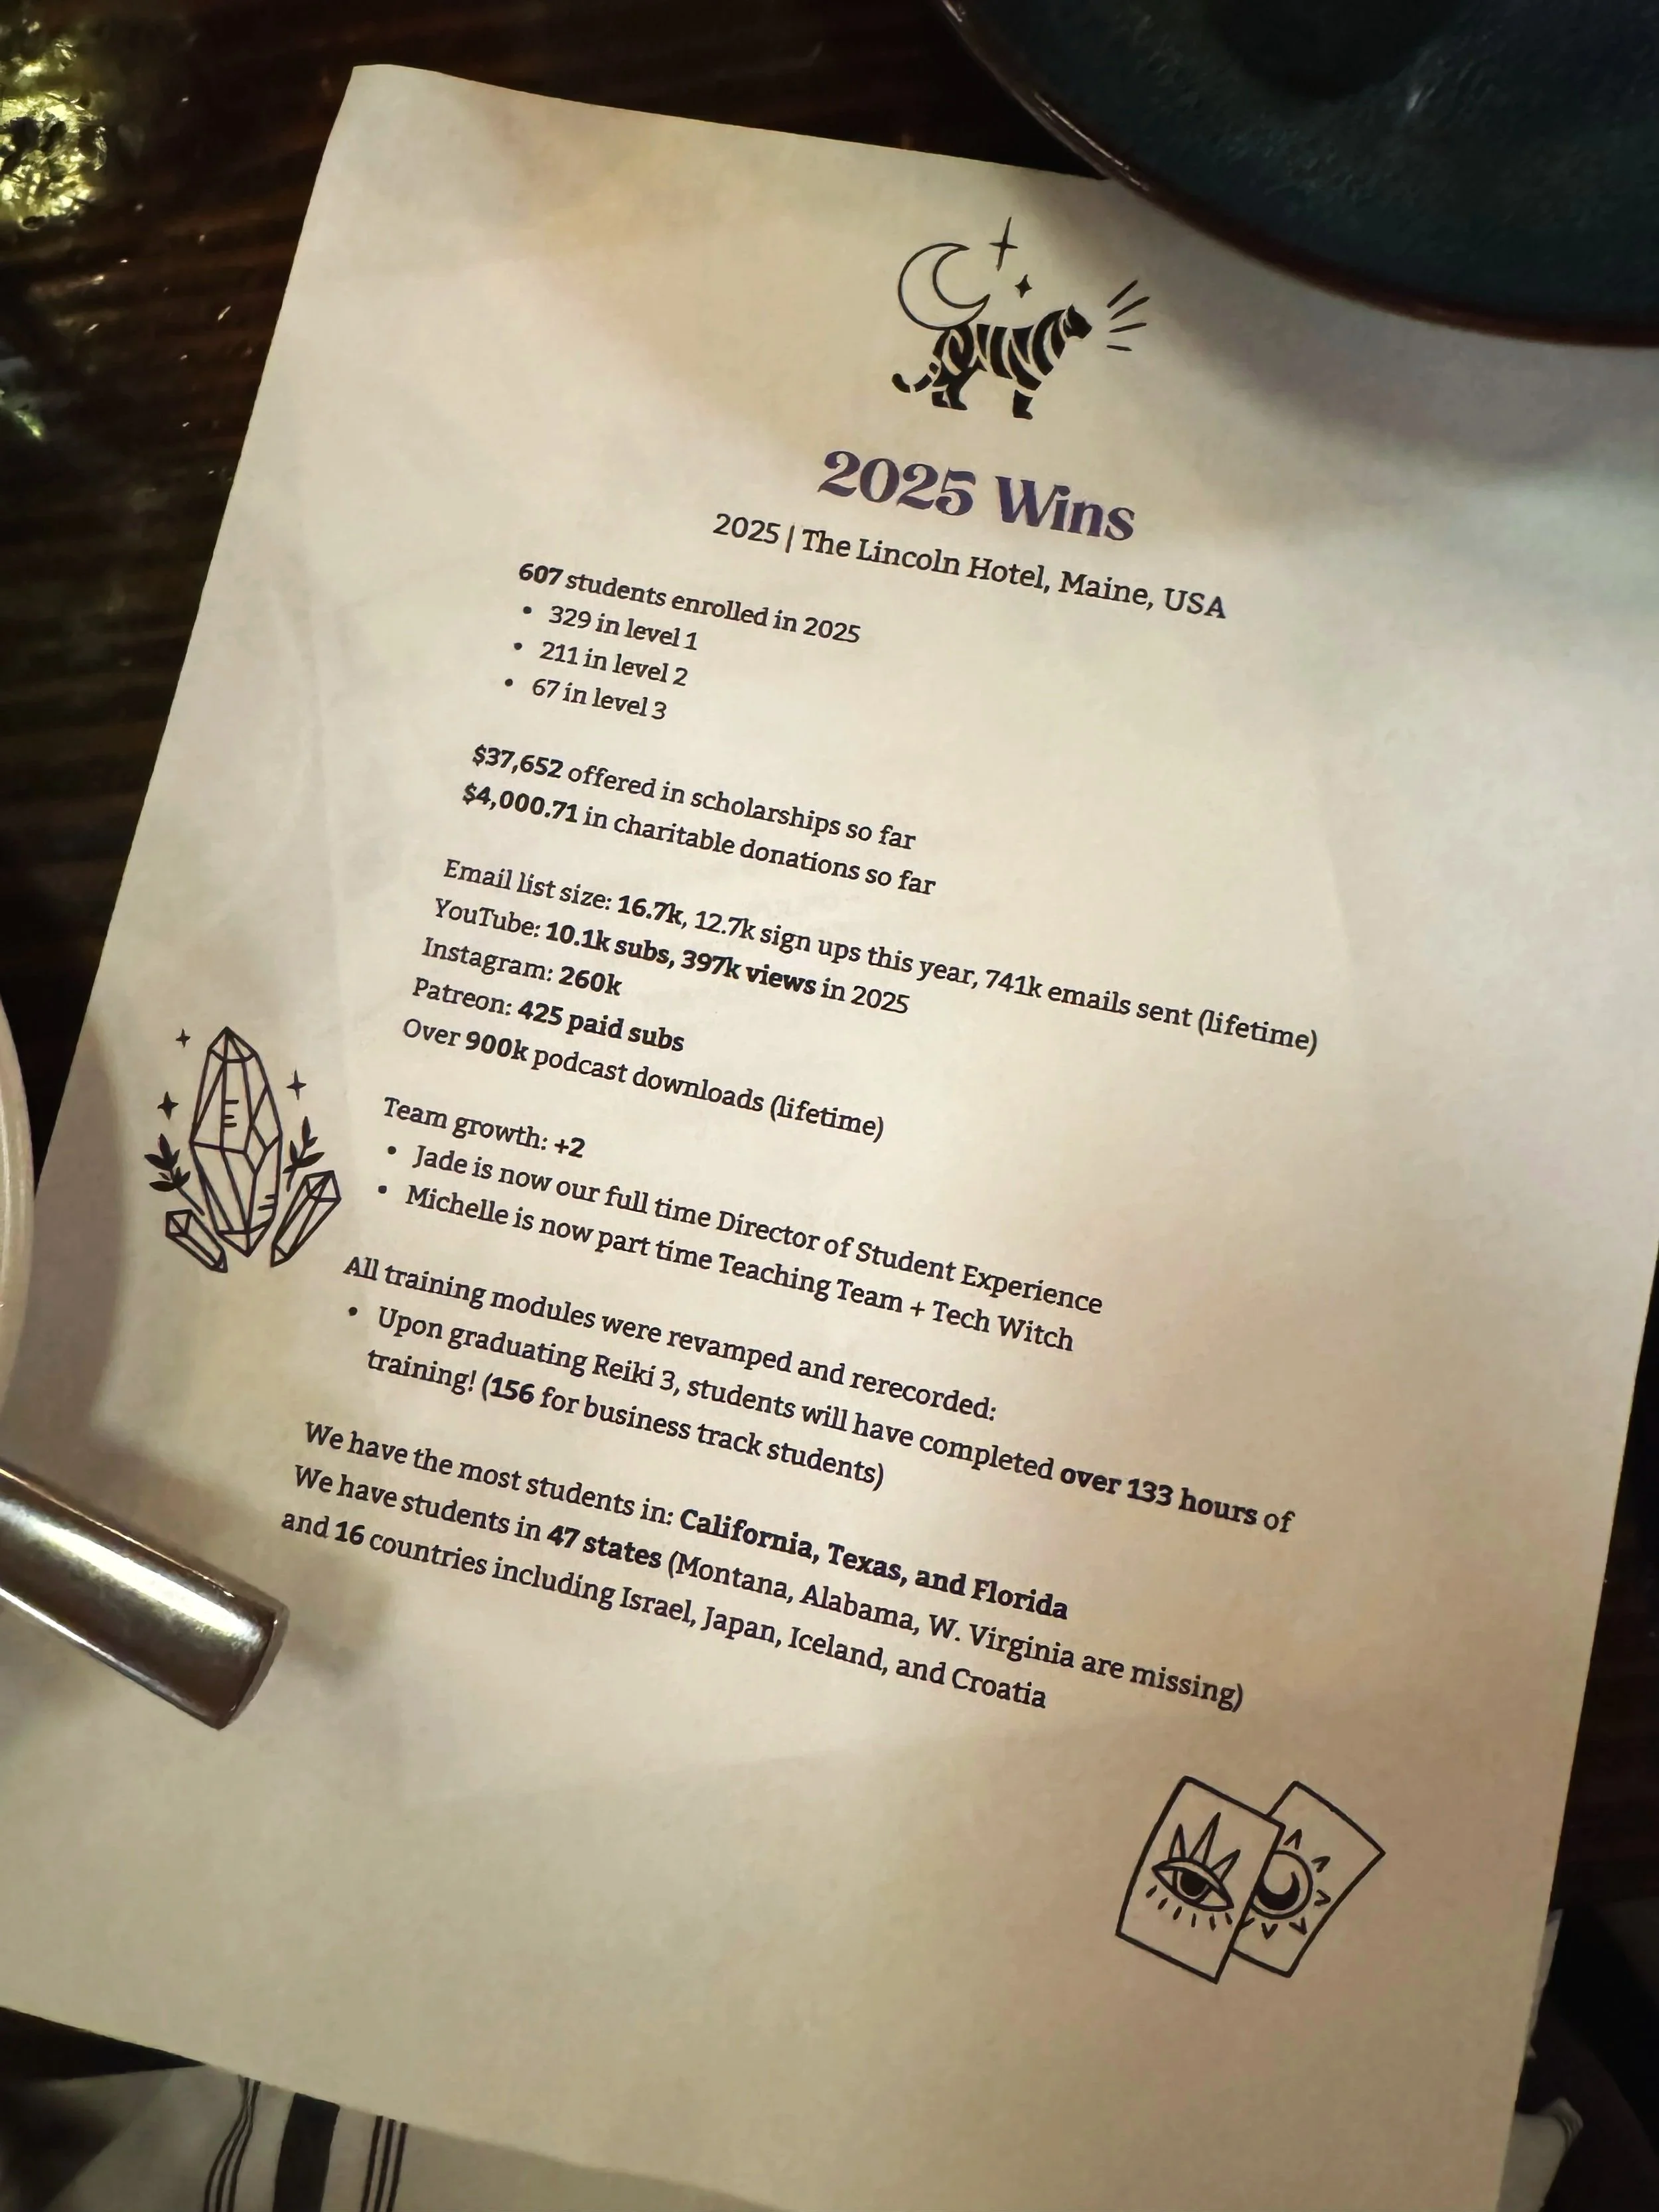 2025 Wins
2025 | The Lincoln Hotel, Maine, USA
607 students enrolled in 2025
• 329 in level 1
• 211 in level 2
• 67 in level 3
$37,652 offered in scholarships so far
$4,000.71 in charitable donations so far
Email list size: 16.7k, 12.7k sign ups this year, 741k emails sent (lifetime)
YouTube: 10.1k subs, 397k views in 2025
Instagram: 260k
Patreon: 425 paid subs
Over 900k podcast downloads (lifetime)
Team growth: +2
• Jade is now our full time Director of Student Experience
• Michelle is now part time Teaching Team + Tech Witch
All training modules were revamped and rerecorded:
• Upon graduating Reiki 3, students will have completed over 133 hours of
training! (156 for business track students)
We have the most students in: California, Texas, and Florida
We have students in 47 states (Montana, Alabama, W. Virginia are missing)
and 16 countries including Israel, Japan, Iceland, and Croatia